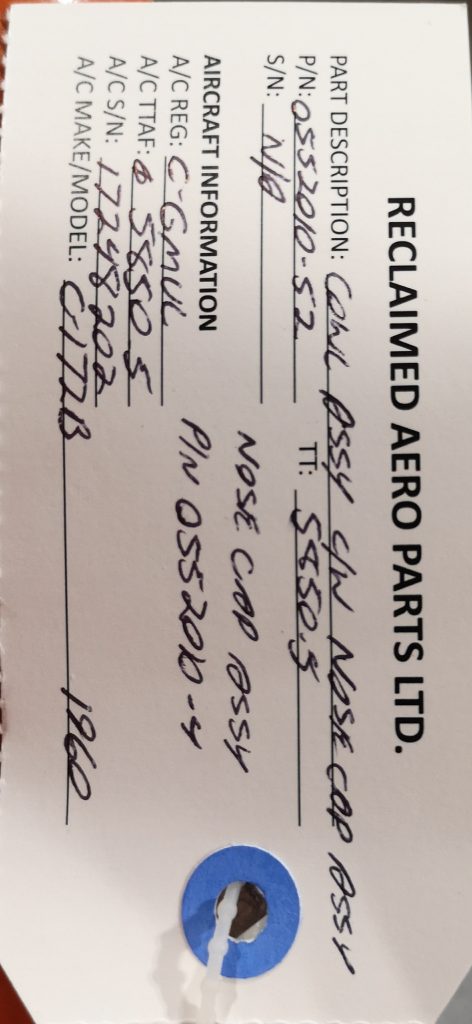 RECLAIMED AERO PARTS LTD.
PART DESCRIPTION: COWL ASSY C/W NOSE CAP ASSY
P/N: 0552010-52 TT: 5850.5
S/N: N/A
NOSE CAP ASSY
P/N 0552010-4
AIRCRAFT INFORMATION
A/C REG: C-GMUL
A/C TTAF: 5850.5
A/C S/N: 17248202
A/C MAKE/MODEL: C172B 1960